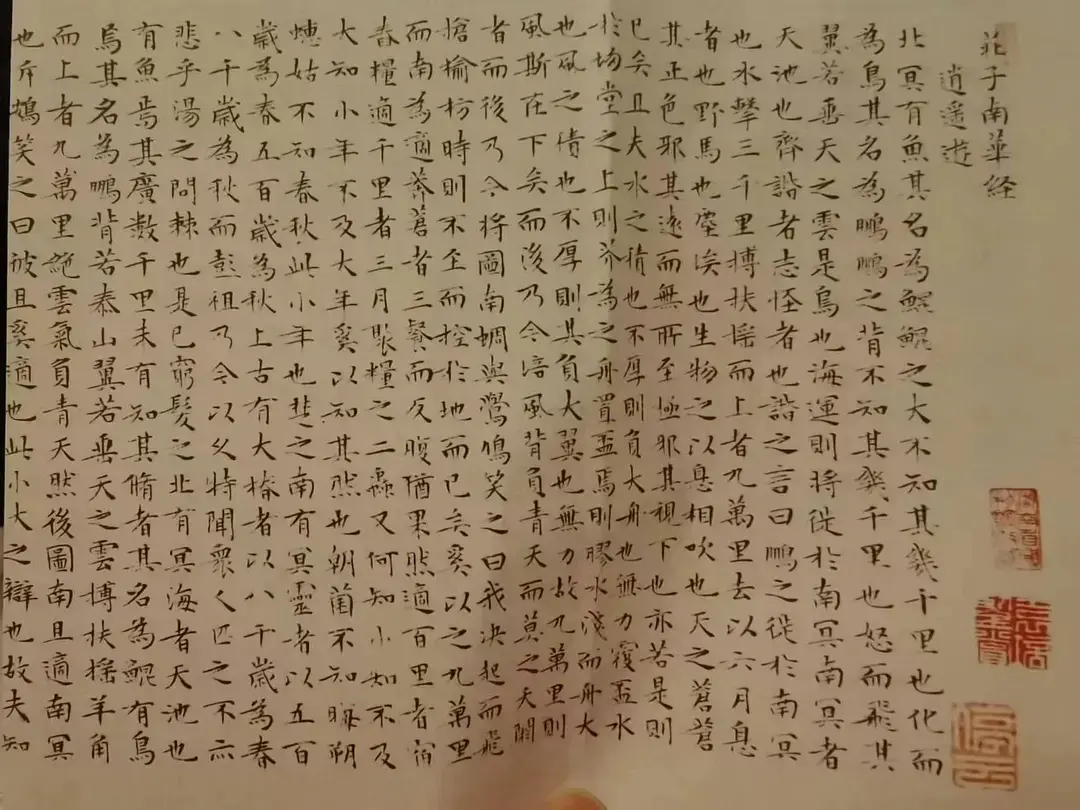 莊子南華経
逍遥遊
北冥有魚其名為鯤鯤之大不知其幾千里也化而
為鳥其名為鵬鵬之背不知其幾千里也怒而飛其
翼若垂天之雲是鳥也海運則將徙於南冥南冥者
天池也齊諧者志怪者也諧之言曰鵬之徙於南冥
也水擊三千里搏扶揺而上者九萬里去以六月息
者也野馬也塵埃也生物之以息相吹也天之蒼蒼
其正色邪其遠而無所至極邪其視下也亦若是則
已矣且夫水之積也不厚則負大舟也無力覆盃水
於坳堂之上則芥為之舟置盃焉則膠水淺而舟大
也風之積也不厚則其負大翼也無力故九萬里則
風斯在下矣而後乃今培風背負青天而莫之夭閼
者而後乃今將圖南蜩與鷽鳩笑之曰我決起而飛
搶榆枋時則不至而控於地而已矣奚以之九萬里
而南為適莽蒼者三餐而反腹猶果然適百里者宿
舂糧適千里者三月聚糧之二蟲又何知小知不及
大知小年不及大年奚以知其然也朝菌不知晦朔
蟪姑不知春秋此小年也楚之南有冥靈者以五百
歲為春五百歲為秋上古有大椿者以八千歲為春
八千歲為秋而彭祖乃今以久特聞眾人匹之不亦
悲乎湯之問棘也是已窮髮之北有冥海者天池也
有魚焉其廣數千里未有知其脩者其名為鯤有鳥
焉其名為鵬背若泰山翼若垂天之雲搏扶揺羊角
而上者九萬里絕雲氣負青天然後圖南且適南冥
也斥鴳笑之曰彼且奚適也此小大之辯也故夫知